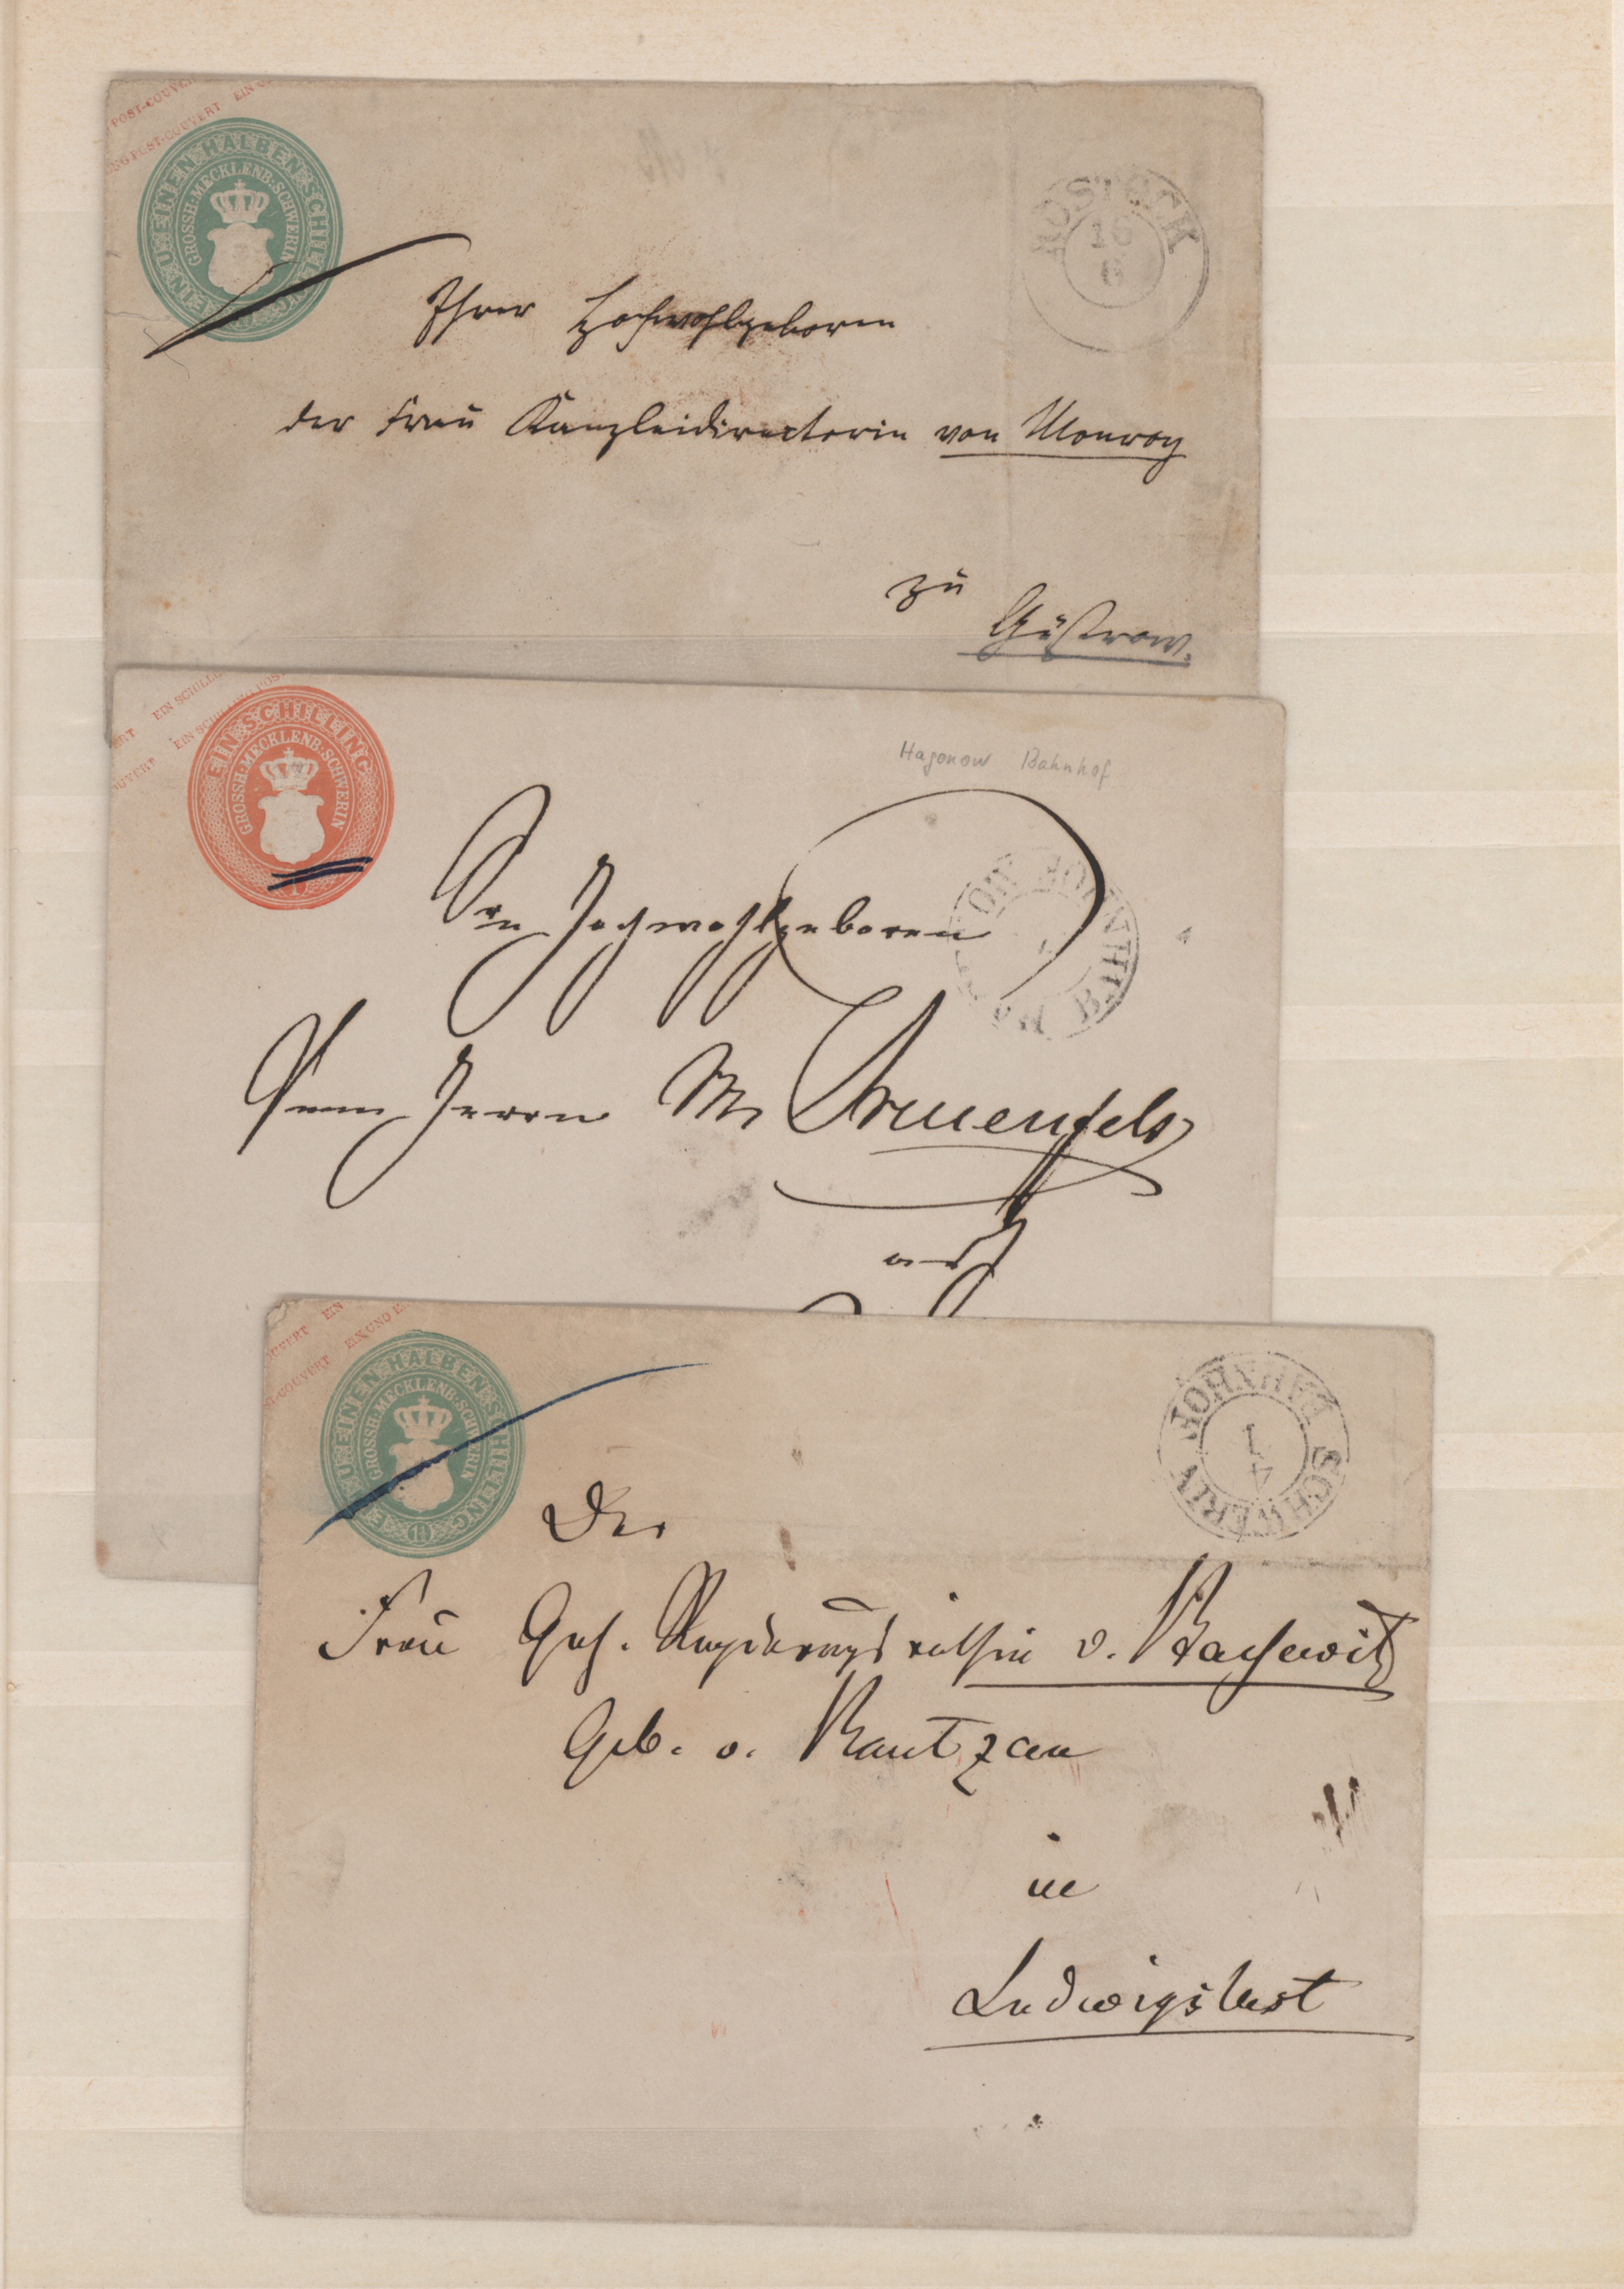 POST-COUVERT
NG POST-COUVERT EIN
EIN U. EINEN HALBEN SCHILLING
GROSSH. MECKLENB. SCHWERIN
ROSTOCK
16
6
Ihrer Hochwohlgeboren
der Frau Kanzleidirectorin von Monroy
zu
Güstrow.
EIN SCHILL
UVERT EIN SCHILLING POST
EIN SCHILLING
GROSSH. MECKLENB. SCHWERIN
1
Hagenow Bahnhof
BAHNHOF
Sr. Hochwohlgeboren
Dem Herrn M.
auf
OUVERT EIN
COUVERT EIN UND E
EIN U. EINEN HALBEN SCHILLING
GROSSH. MECKLENB. SCHWERIN
1½
SCHWERIN BAHNHOF
4
1
Der
Frau Geh. Regierungsräthin v. Bassewitz
Geb. v. Rantzau
in
Ludwigslust